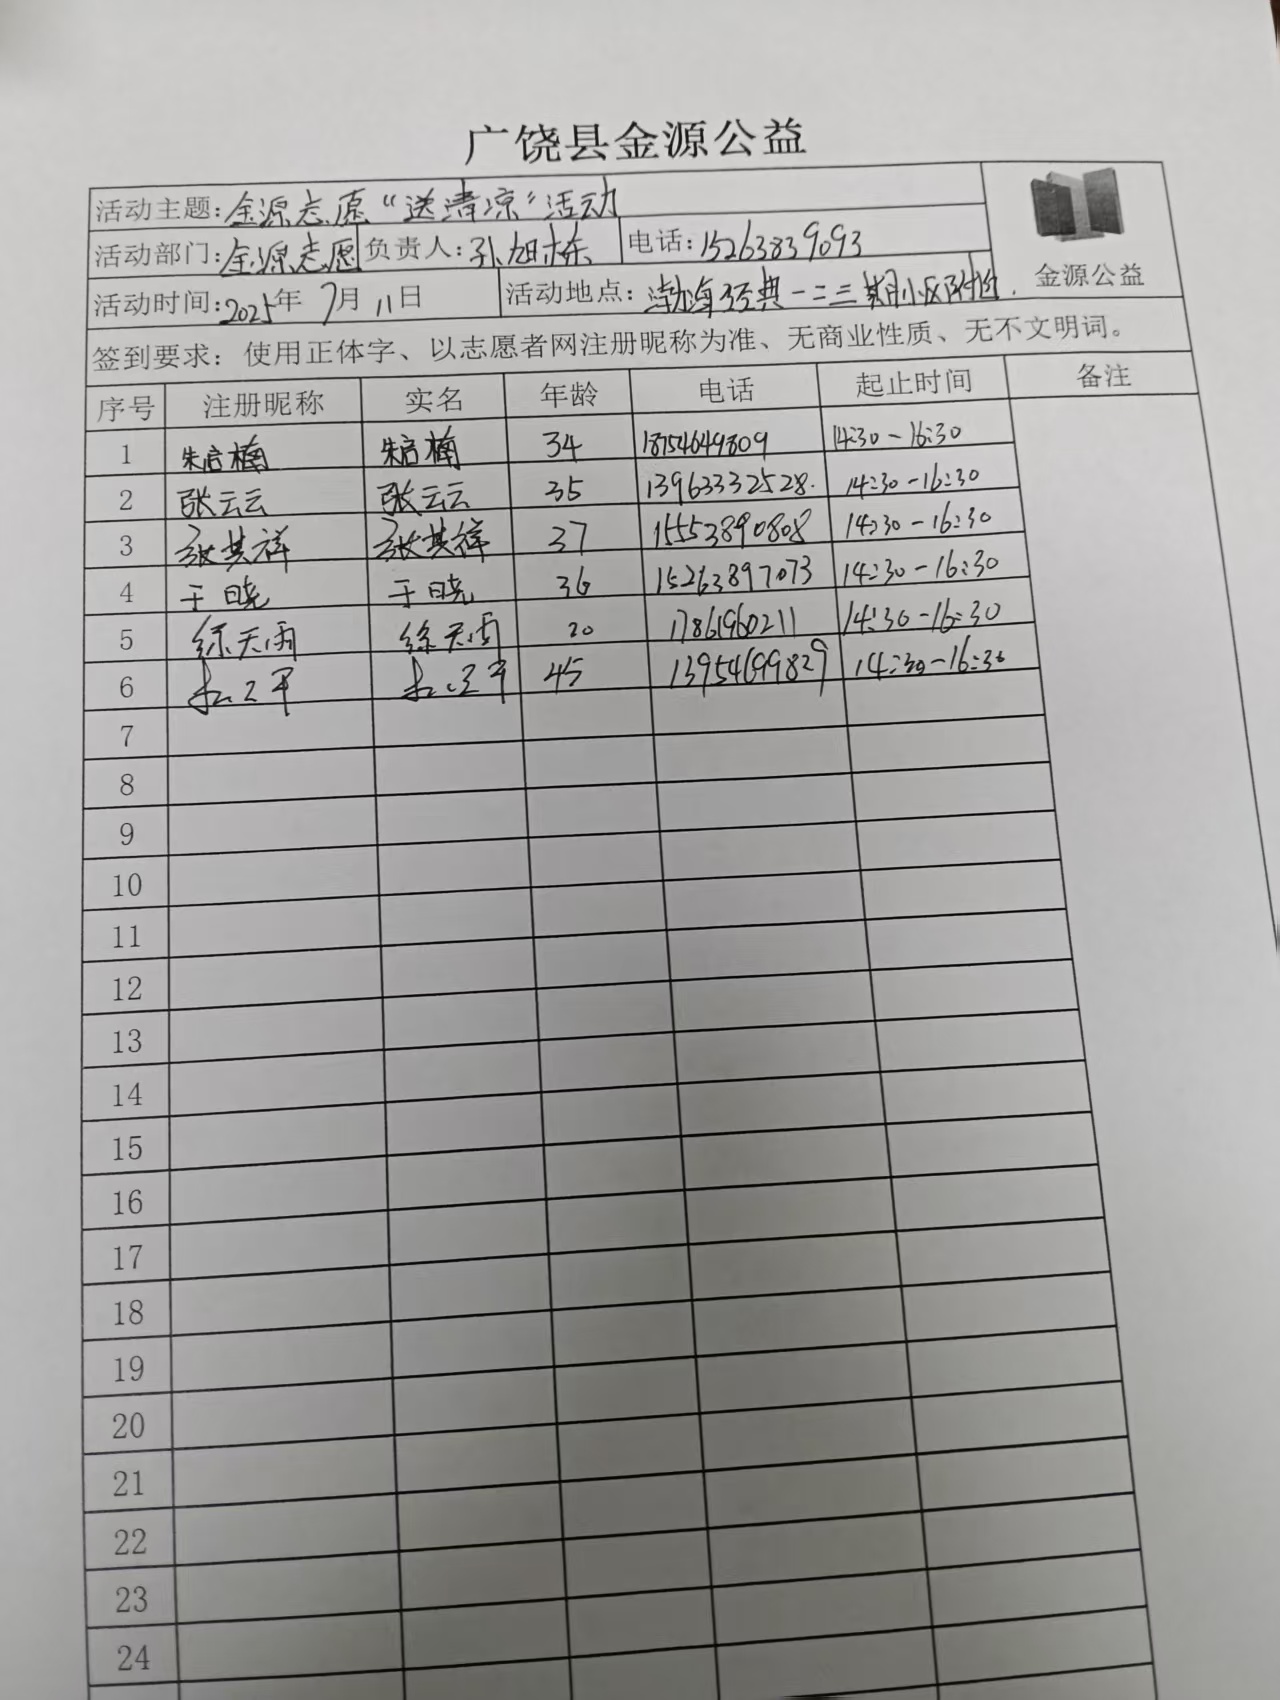 广饶县金源公益
活动主题：金源志愿“送清凉”活动
活动部门：金源志愿 负责人：孙旭栋 电话：15263839093
金源公益
活动时间：2025年 7月 11日 活动地点：渤海经典一二三期小区附近.
签到要求：使用正体字、以志愿者网注册昵称为准、无商业性质、无不文明词。
序号 注册昵称 实名 年龄 电话 起止时间 备注
1 朱启楠 朱启楠 34 18754649809 14:30－16:30
2 张云云 张云云 35 13963332528. 14:30－16:30
3 张其祥 张其祥 37 15553890808 14:30－16:30
4 于晓 于晓 36 15263897073 14:30－16:30
5 徐天雨 徐天雨 20 17861960211 14:30－16:30
6 45 13954699829 14:30－16:30
7
8
9
10
11
12
13
14
15
16
17
18
19
20
21
22
23
24